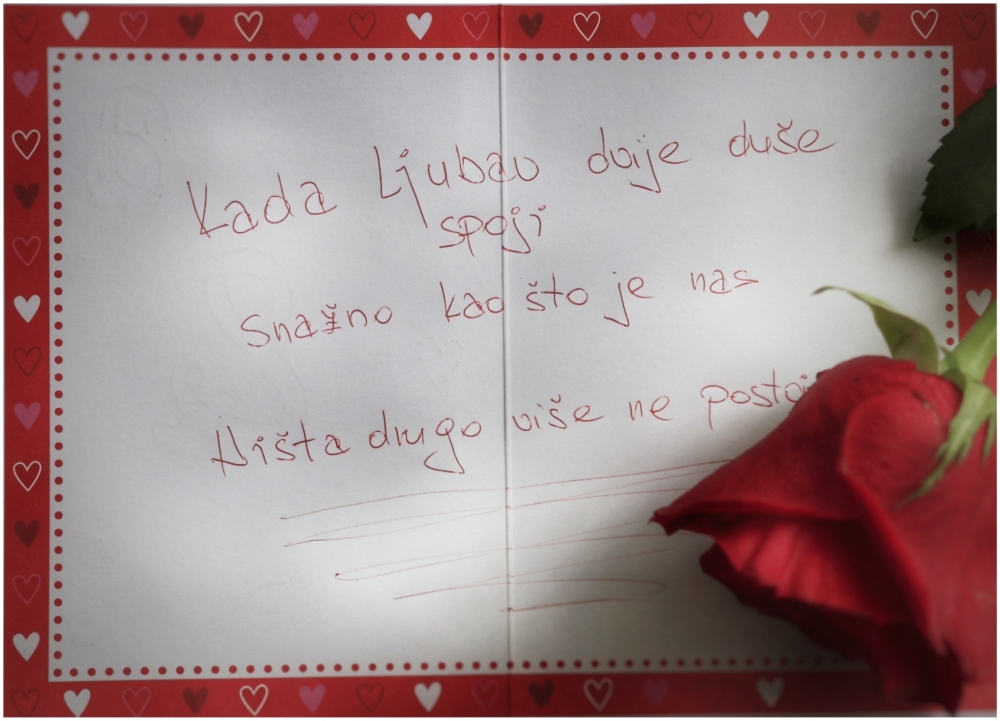 Kada Ljubav dvije duše
spoji
Snažno kao što je nas
Ništa drugo više ne postoji